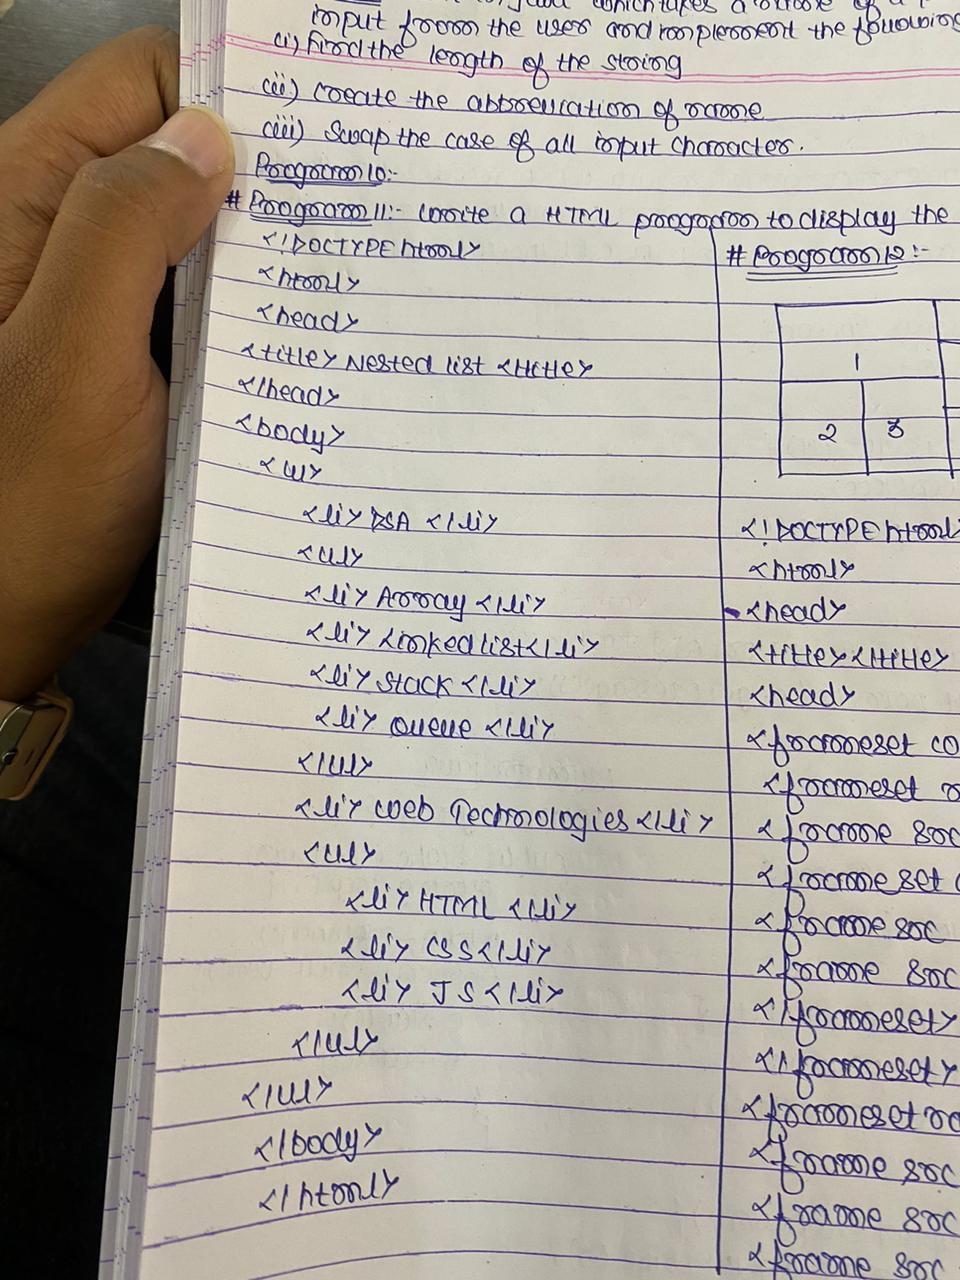 input from the user and implement the following
(i) Find the length of the string
(ii) create the abbreviation of name
(iii) Swap the case of all input character.
Program 10:-
# Program 11:- write a HTML program to display the
<!DOCTYPE html>
<html>
<head>
<title> Nested list </title>
</head>
<body>
<ul>
<li> DSA </li>
<ul>
<li> Array </li>
<li> Linked list </li>
<li> Stack </li>
<li> Queue </li>
</ul>
<li> Web Technologies </li>
<ul>
<li> HTML </li>
<li> CSS </li>
<li> JS </li>
</ul>
</ul>
</body>
</html>
# Program 12:-
1
2 3
<!DOCTYPE html
<html>
<head>
<title> </title>
<head>
<frameset co
<frameset
<frame src
<frameset
<frame src
<frame src
</frameset>
</frameset>
<frameset ro
<frame src
<frame src
<frame src